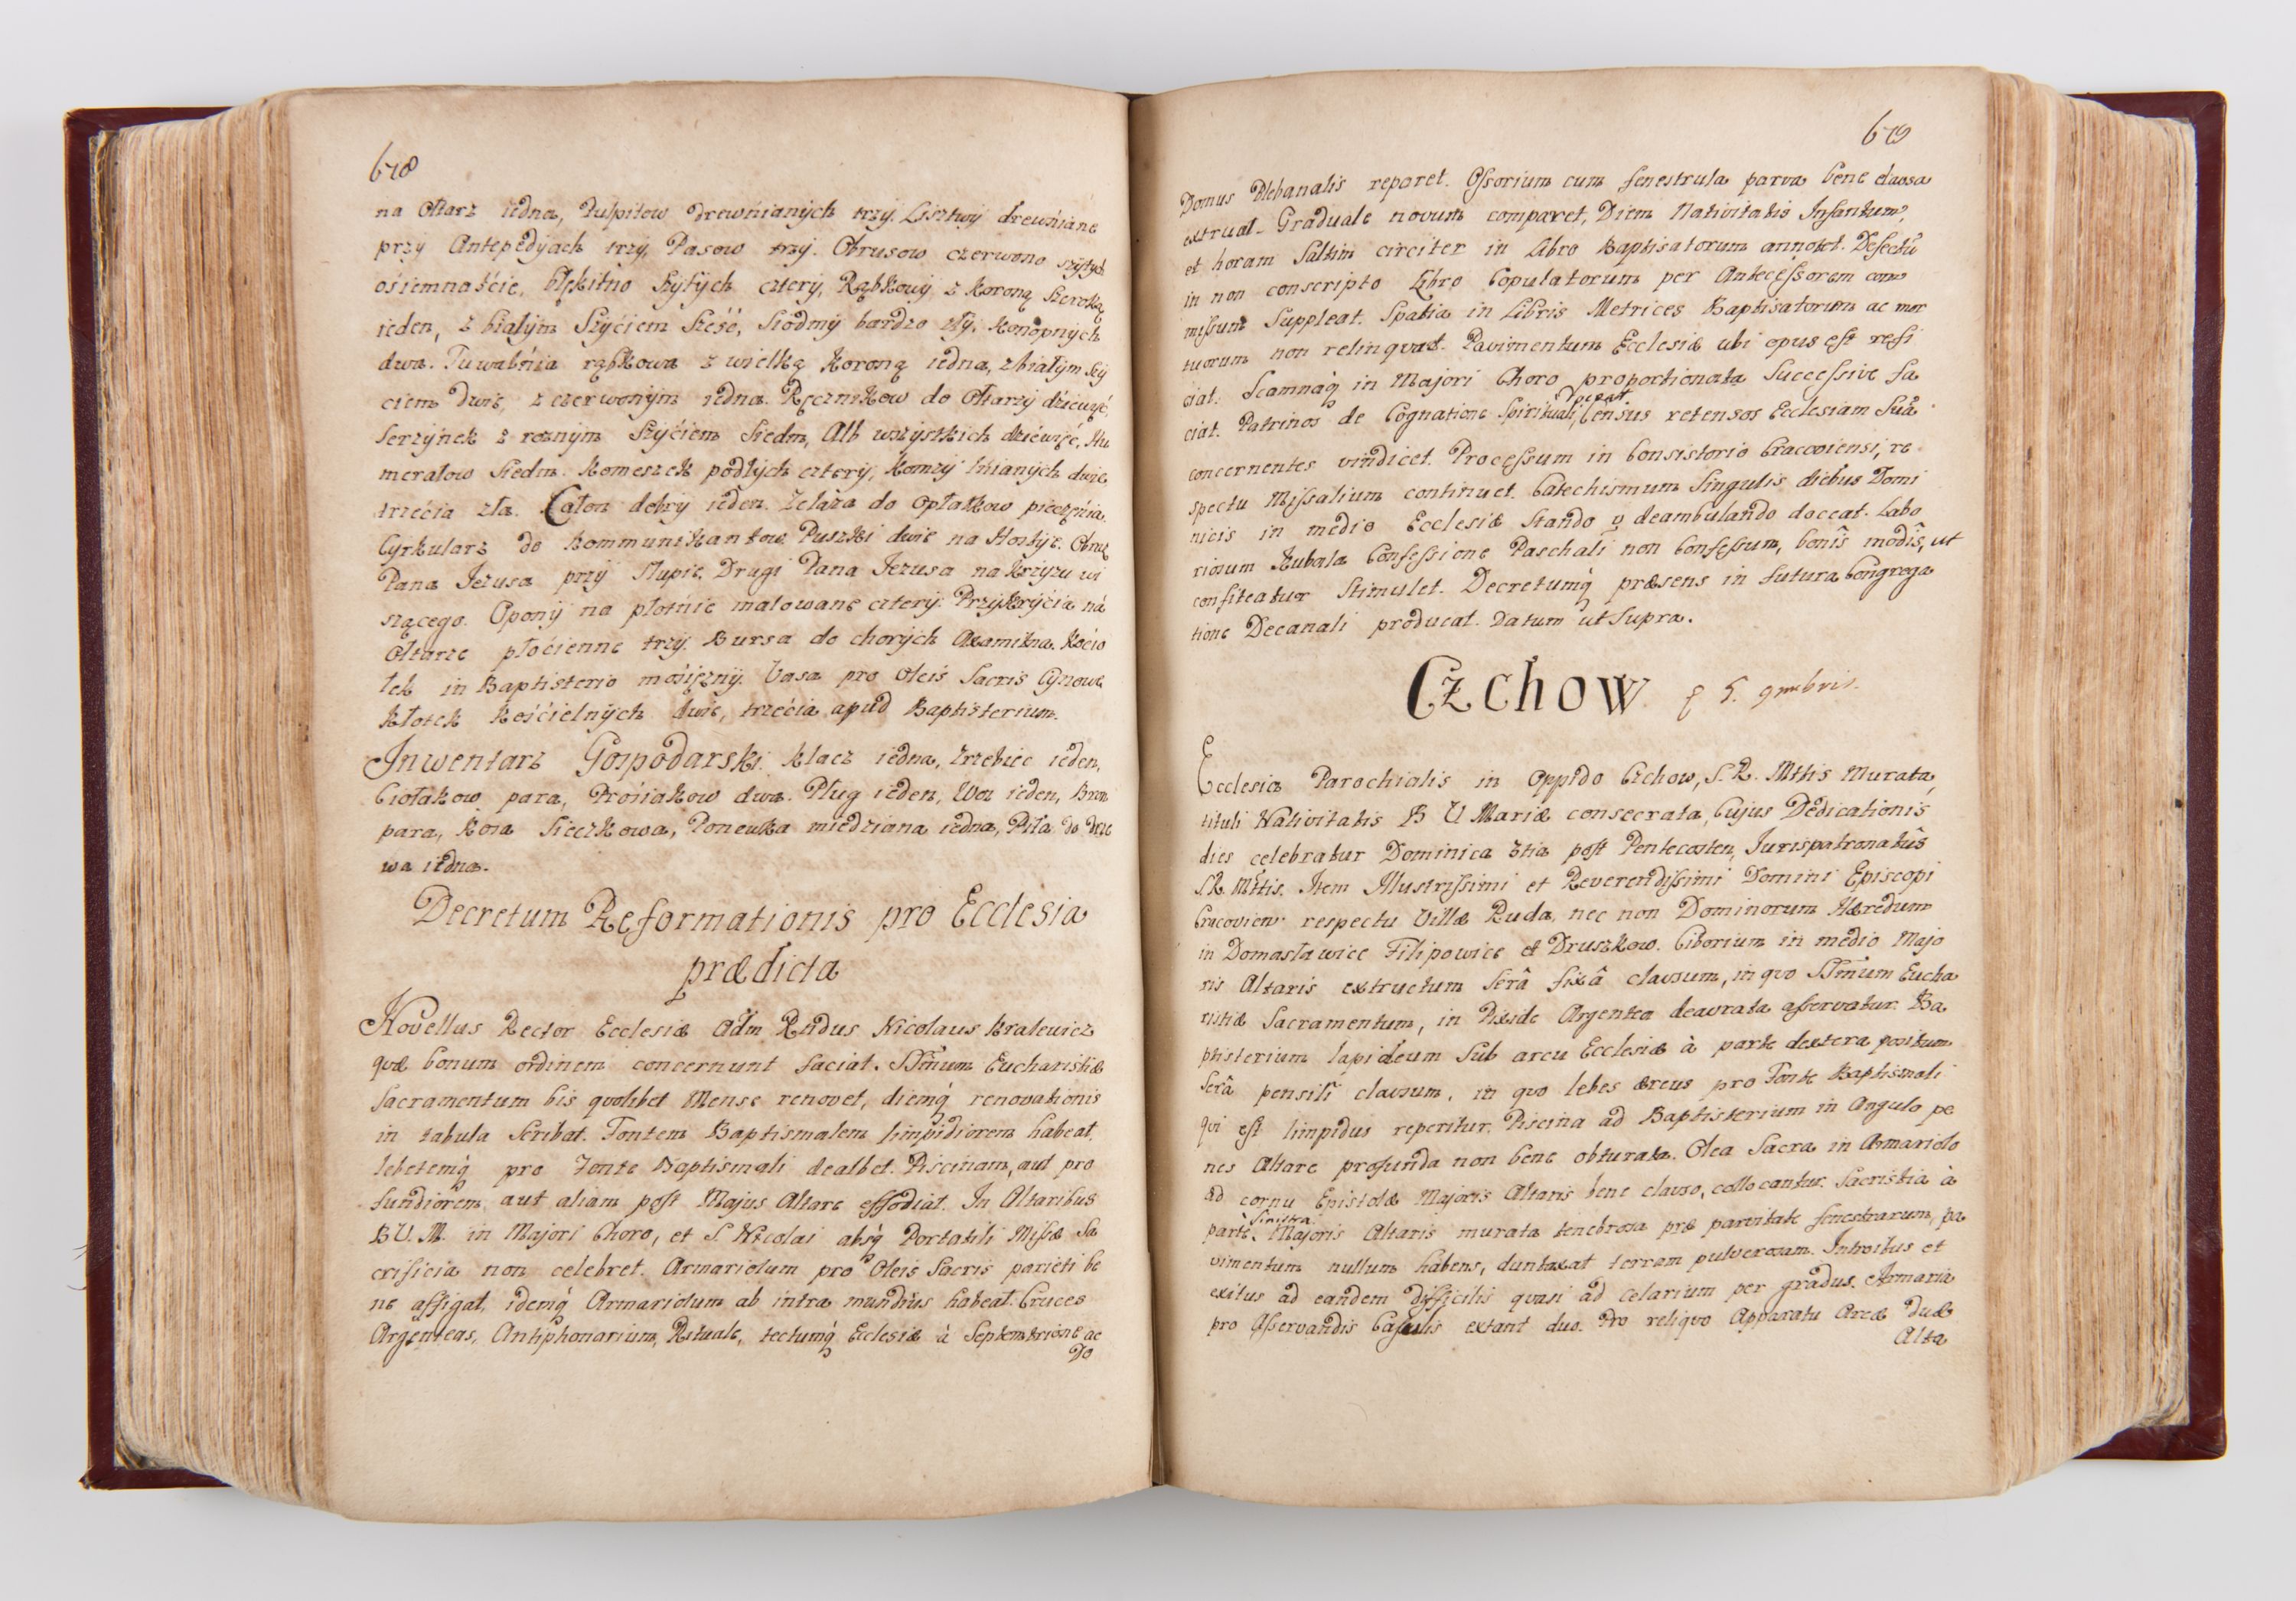 678
na Ołtarz iedna, Pulpitow drewnianych trzy. Lisztwy drewniane
przy Antepedyach trzy, Pasow trzy. Obrusow czerwono szytych
ośiemnaście, błękitno szytych cztery, Rąbkowy z Koroną szeroką
ieden, z białym Szyćiem Sześć, Siodmy bardzo zły, Konopnych
dwa. Tuwalnia rąbkowa z wielką Koroną iedna, z białym szy
ciem dwie, z czerwonym iedna. Ręcznikow do Ołtarzy dźiewięć,
Serzynek z roznym Szyćiem Siedm, Alb wszystkich dźiewięć, Hu
merałow Siedm. Komeszek podłych cztery, Komzy lnianych dwie
trzećia zła. Całon dobry ieden. Żelaza do Opłatkow pieczęnia.
Cyrkularz do Kommunikantow. Puszki dwie na Hostye. Obraz
Pana Jezusa przy Słupie. Drugi Pana Jezusa na Krzyzu wi
szącego. Opony na płotnie malowane cztery. Przykryćia ná
Ołtarze płoćienne trzy. Bursa do chorych Axamitna. Koćio
łek in Baptisterio mośiężny. Vasa pro Oleis Sacris Cynowe
Kłotek Kośćielnych dwie, trzećia apud Baptisterium.
Inwentarz Gospodarski. Klacz iedna, Zrzebiec ieden,
Ciołakow para, Prośiakow dwa. Pług ieden, Woz ieden, Bron
para, Kosa Sieczkowa, Ponewka miedziana iedna, Piła do drze
wa iedna.
Decretum Reformationis pro Ecclesia
prædicta
Novellus Rector Ecclesiæ Adm Rndus Nicolaus Kralewicz
quæ bonum ordinem concernunt faciat. SSmum Eucharistiæ
Sacramentum bis quolibet Mense renovet, diemq́ renovationis
in tabula Scribat. Fontem Baptismalem limpidiorem habeat,
lebetemq́ pro Fonte Baptismali dealbet. Piscinam, aut pro
fundiorem aut aliam post Majus Altare effodiat. In Altaribus
B V. M. in Majori Choro, et S. Nicolai absq́ Portatili Missæ Sa
crificia non celebret. Armariolum pro Oleis Sacris parieti be
ne affigat, idemq́ Armariolum ab intra mundius habeat. Cruces
Argenteas, Antiphonarium, Rituale, tectumq́ Ecclesiæ à Septemtrione ac
Do
679
Domus Plebanalis reparet. Ossorium cum fenestrula parva bene clausa
extruat. Graduale novum comparet, Diem Nativitatis Infantum,
et horam Saltim circiter in Libro Baptisatorum annotet. Defectũ
in non conscripto Libro Copulatorum per Antecessorem com
missum Suppleat. Spatia in Libris Metrices Baptisatorum ac mor
tuorum non relinquat. Pavimentum Ecclesiæ ubi opus est refi
ciat. Scamnaq́ in Majori Choro proportionata Successive fa
ciat. Patrinos de Cognatione Spirituali, doceat Census retensos Ecclesiam Suã
concernentes vindicet. Processum in Consistorio Cracoviensi, re
spectu Missalium continuet. Catechismum Singulis diebus Domi
nicis in medio Ecclesiæ Stando v̱ deambulando doceat. Labo
riosum Kubala Confessione Paschali non Confessum, bonîs modîs, ut
confiteatur Stimulet. Decretumq́ præsens in futura Congrega
tione Decanali producat. Datum ut Supra.
Czchow 5. 9mbris.
Ecclesia Parochialis in Oppido Czchow, S. R. Mttis Murata,
tituli Nativitatis B V Mariæ consecrata, Cujus Dedicationis
dies celebratur Dominica 3tia post Pentecosten, Jurispatronatûs
S R. Mttis. Item Illustrissimi et Reverendissimi Domini Episcopi
Cracovien: respectu Villæ Ruda, nec non Dominorum Hæredum
in Domasławice Filipowice et Druszkow. Ciborium in medio Majo
ris Altaris extructum Serâ fixâ clausum, in quo SSmum Eucha
ristiæ Sacramentum, in Pixide Argentea deaurata asservatur. Ba
ptisterium lapideum Sub arcu Ecclesiæ à parte dextera positum
Serâ pensili clausum, in quo lebes æreus pro Fonte Baptismali
qui est limpidus reperitur. Piscina ad Baptisterium in Angulo pe
nes Altare profunda non bene obturata. Olea Sacra in Armariolo
ad cornu Epistolæ Majoris Altaris bene clauso, collocantur. Sacristia à
parte sinistra Majoris Altaris murata tenebrosa præ parvitate fenestrarum, pa
vimentum nullum habens, duntaxat terram pulverosam. Introitus et
exitus ad eandem difficilis quasi ad celarium per gradus. Armaria
pro Asservandis Casulis extant duo. Pro reliquo Apparatu Arcæ duæ
Alta